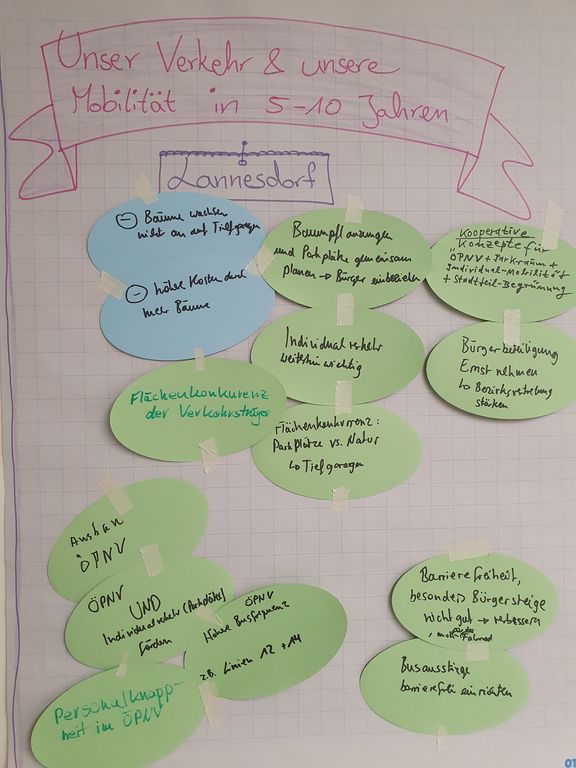 Unser Verkehr & unsere
Mobilität in 5-10 Jahren
Lannesdorf
Bäume wachsen
nicht an auf Tiefgaragen
höhere Kosten durch
mehr Bäume
Flächenkonkurenz
der Verkehrsträger
Baumpflanzungen
und Parkplätze gemeinsam
planen → Bürger einbeziehen
Individualverkehr
weiterhin wichtig
Flächenkonkurrenz:
Parkplätze vs. Natur
↳ Tiefgaragen
Kooperative
"Konzepte für
ÖPNV + Parkraum +
Individual-Mobilität
+ Stadtteil-Begrünung
Bürgerbeteiligung
Ernst nehmen
↳ Bezirksvertretung
stärken
Ausbau
ÖPNV
ÖPNV
UND
Individualverkehr (Parkplätze)
fördern
ÖPNV
Busfrequenz
z.B. Linien 12 + 14
Personalknapp-
heit im ÖPNV
Barrierefreiheit,
besonders Bürgersteige
nicht gut → verbessern
, auch für das Fahrrad
Busausstiege
barrierefrei einrichten
01